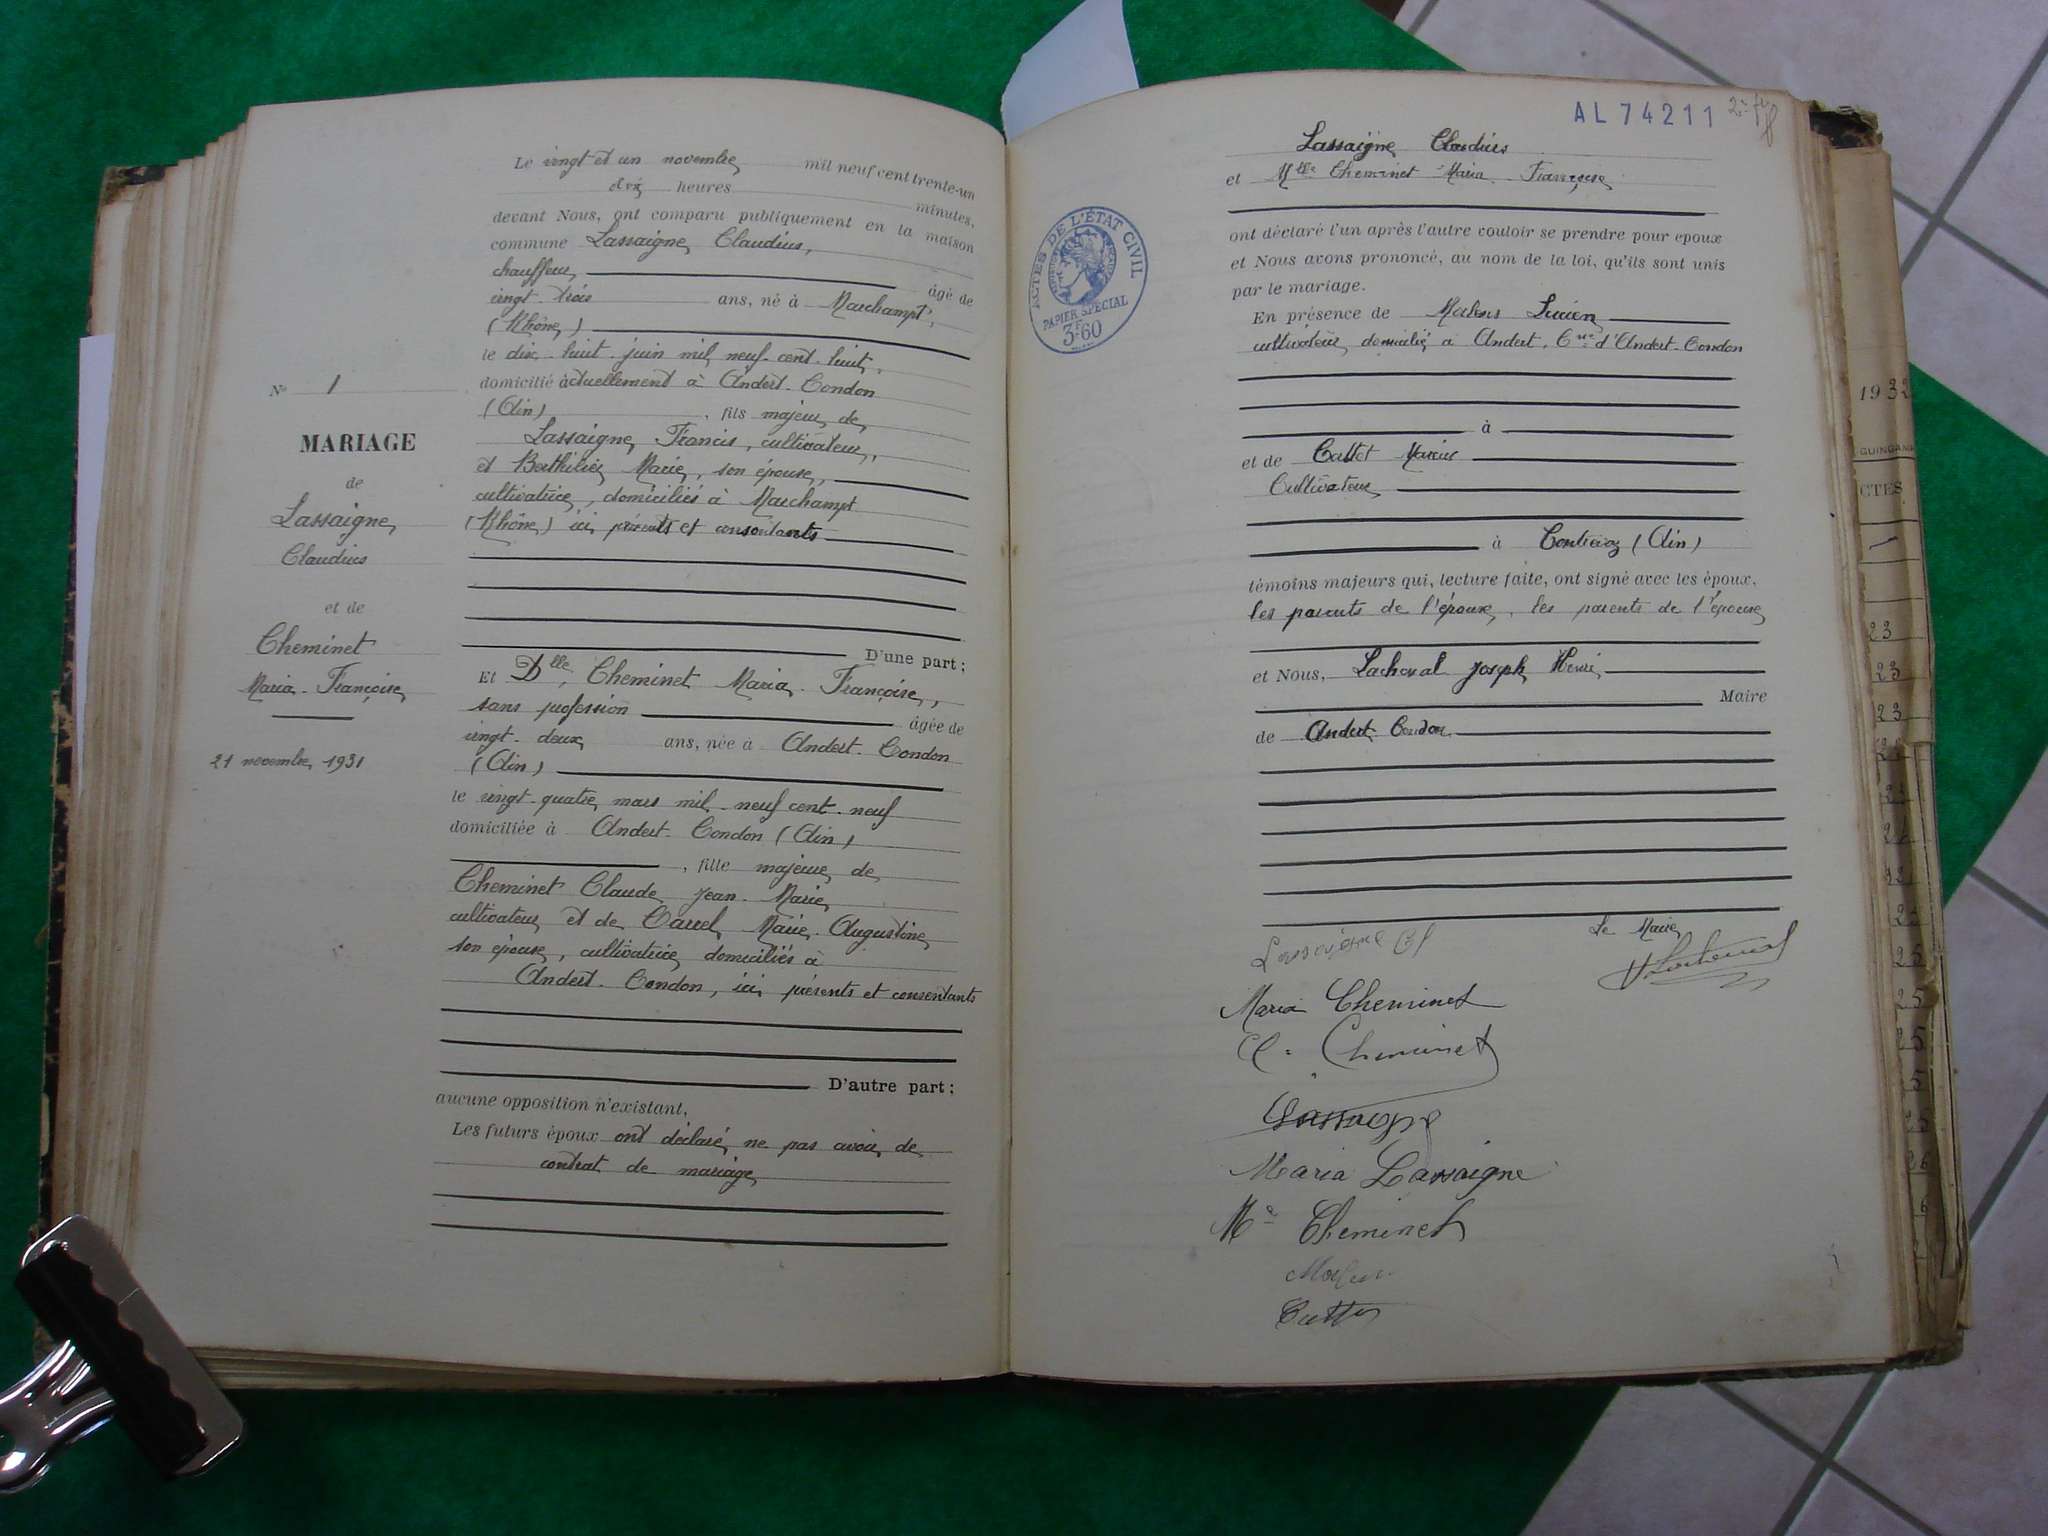 Le vingt et un novembre mil neuf cent trente-un
dix heures minutes,
devant Nous, ont comparu publiquement en la maison
commune Lassaigne Claudius,
chauffeur âgé de
vingt-trois ans, né à Marchampt,
(Rhône)
le dix-huit juin mil neuf cent huit,
domicilié actuellement à Andert-Condon
(Ain), fils majeur de
Lassaigne Francis, cultivateur,
et Berthilier Marie, son épouse,
cultivatrice, domiciliés à Marchampt
(Rhône) ici présents et consentants
D'une part;
Et Dlle Cheminet Maria-Françoise,
sans profession âgée de
vingt-deux ans, née à Andert-Condon
(Ain)
le vingt-quatre mars mil-neuf cent-neuf
domiciliée à Andert-Condon (Ain)
, fille majeure de
Cheminet Claude Jean-Marie
cultivateur et de Carrel Marie-Augustine
son épouse, cultivatrice domiciliés à
Andert-Condon, ici présents et consentants
D'autre part;
aucune opposition n'existant,
Les futurs époux ont déclaré ne pas avoir de
contrat de mariage
No 1
MARIAGE
de
Lassaigne
Claudius
et de
Cheminet
Maria-Françoise
21 novembre 1931
AL 74211
Lassaigne Claudius
et Mlle Cheminet Maria-Françoise
ont déclaré l'un après l'autre vouloir se prendre pour époux
et Nous avons prononcé, au nom de la loi, qu'ils sont unis
par le mariage.
En présence de Lucien
cultivateur domicilié à Andert, Cne d'Andert-Condon
à
et de Marius
Cultivateur
à Contrevoz (Ain)
témoins majeurs qui, lecture faite, ont signé avec les époux,
les parents de l'époux, les parents de l'épouse
et Nous, Lacheval Joseph Henri
Maire
de Andert-Condon
ACTES DE L'ÉTAT CIVIL
PAPIER SPÉCIAL
3F60
Le Maire
Lassaigne Cl
Lacheval
Maria Cheminet
C. Cheminet
Lassaigne
Maria Lassaigne
Me Cheminet
1932
GUINGAM
CTES
1
23
23
23